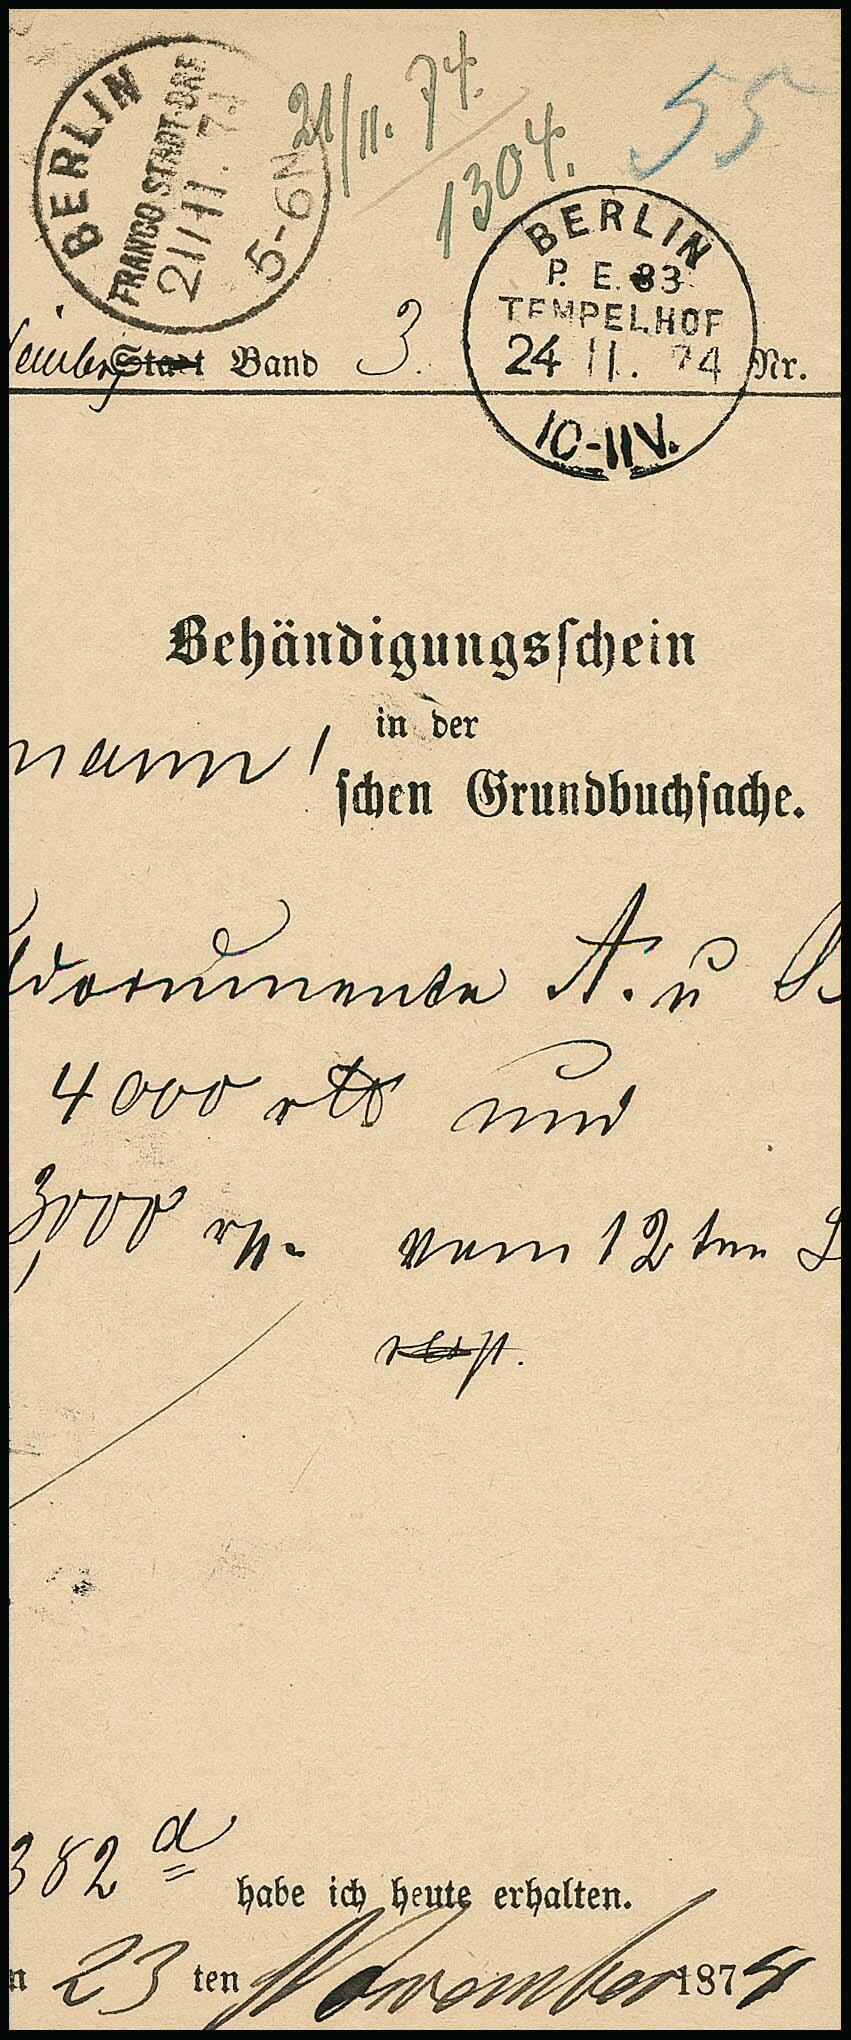 BERLIN
FRANCO STADT-BRF
21/11. 74
5-6N
21/11. 74.
1304.
55
BERLIN
P. E. 83
TEMPELHOF
24 11. 74
10-11V.
Stadt Band 3. Nr.
Behändigungsschein
in der
mann'
schen Grundbuchsache.
documente A. u
4000 rtl und
3,000 vom 12ten
resp.
382 d
habe ich heute erhalten.
n 23 ten November 1874